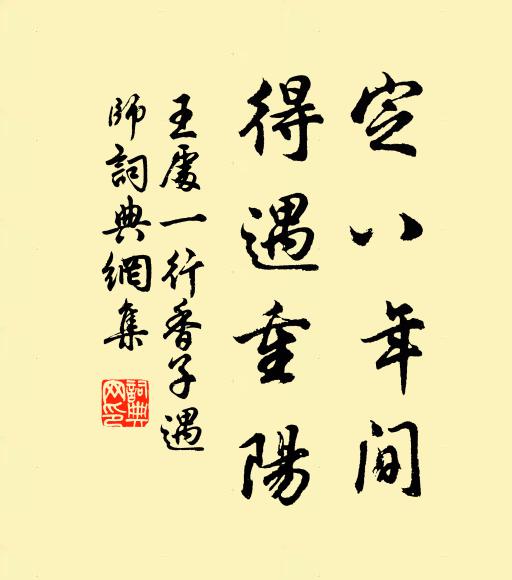 定八年间
得遇重陽
王處一行香子遇
師詞典網集
詞典網印